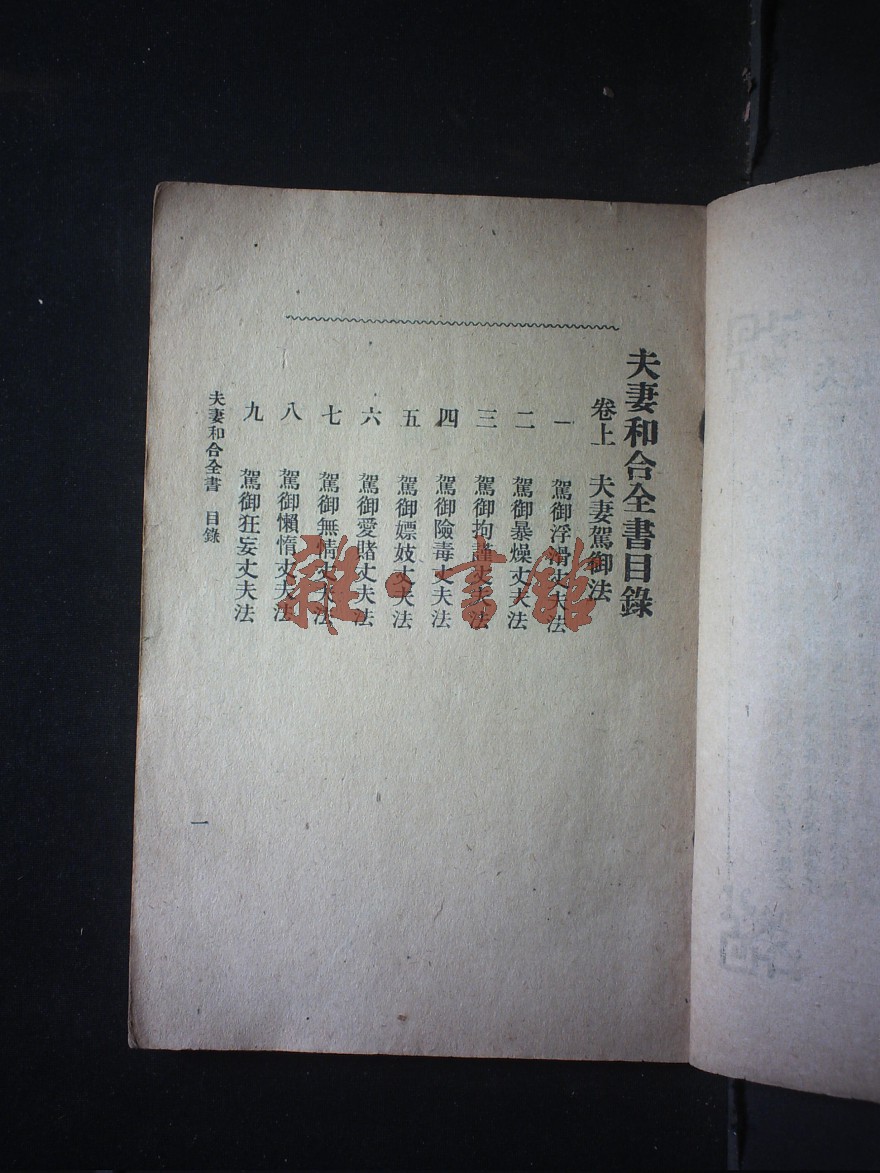 夫妻和合全書目錄
卷上 夫妻駕御法
一 駕御浮滑丈夫法
二 駕御暴燥丈夫法
三 駕御拘謹丈夫法
四 駕御險毒丈夫法
五 駕御嫖妓丈夫法
六 駕御愛賭丈夫法
七 駕御無情丈夫法
八 駕御懶惰丈夫法
九 駕御狂妄丈夫法
夫妻和合全書 目錄
一
雜·書館